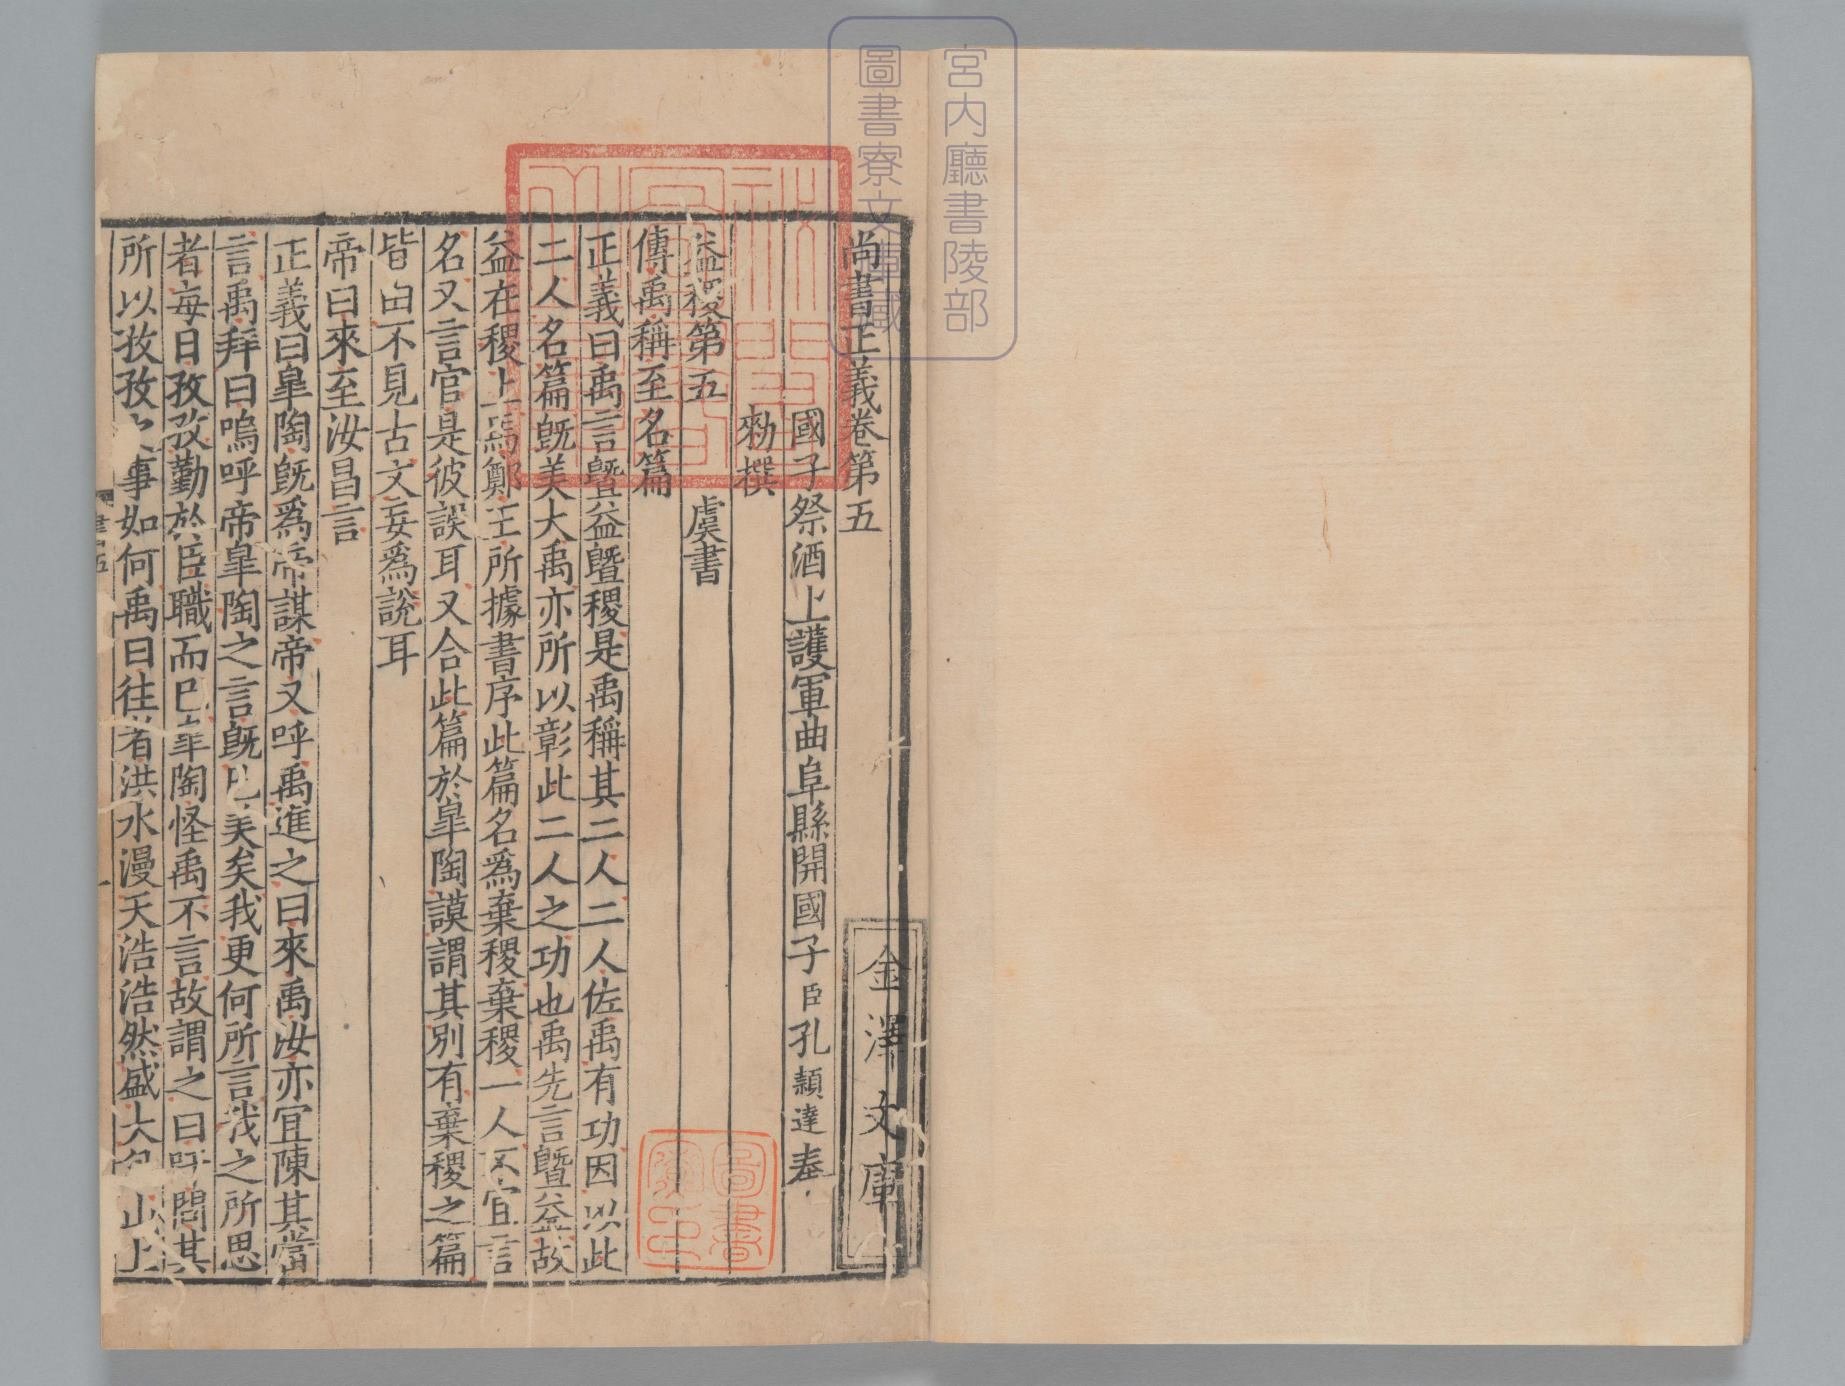 宮内廳書陵部
圖書寮文庫蔵
尚書正義卷第五
國子祭酒上護軍曲阜縣開國子臣孔穎達奉
勑撰
益稷第五 虞書
傳禹稱至名篇
正義曰禹言曁益曁稷是禹稱其二人二人佐禹有功因以此
二人名篇旣美大禹亦所以彰此二人之功也禹先言曁益故
益在稷上馬鄭王所據書序此篇名爲棄稷棄稷一人不宜言
名又言官是彼誤耳又合此篇於皐陶謨謂其別有棄稷之篇
皆由不見古文妄爲說耳
帝曰來至汝昌言
正義曰皐陶旣爲帝謀帝又呼禹進之曰來禹汝亦宜陳其當
言禹拜曰嗚呼帝皐陶之言旣已美矣我更何所言我之所思
者每日孜孜勤於臣職而已皐陶怪禹不言故謂之曰吁問其
所以孜孜之事如何禹曰往者洪水漫天浩浩然盛大包山上
金澤文庫
圖書寮印